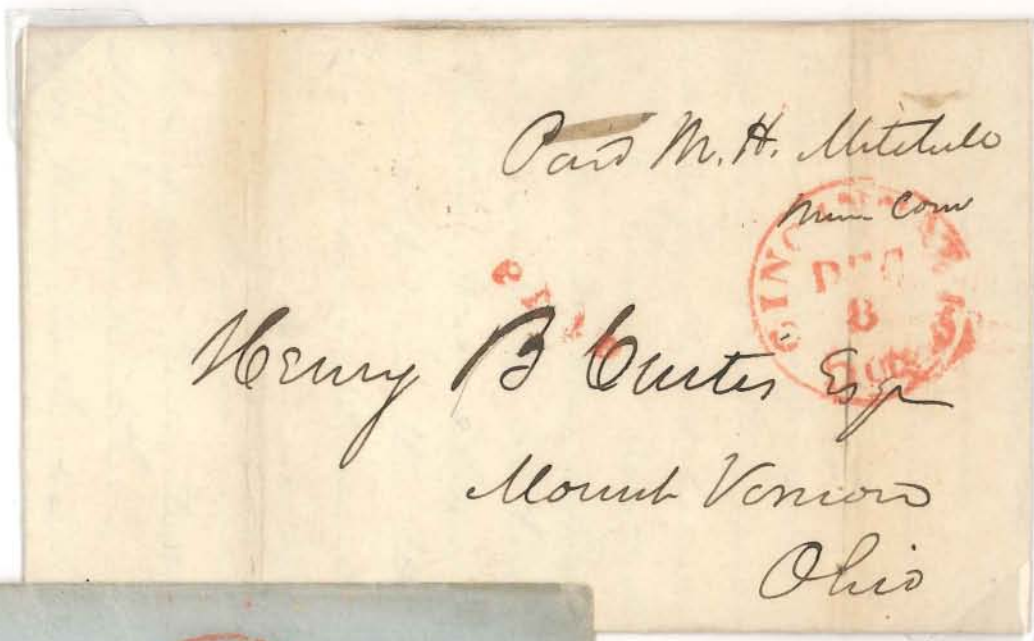 Paid M. H. Mitchell
Mem Conv
DEC
8
PAID
Henry B Curtis Esqr
Mount Vernon
Ohio